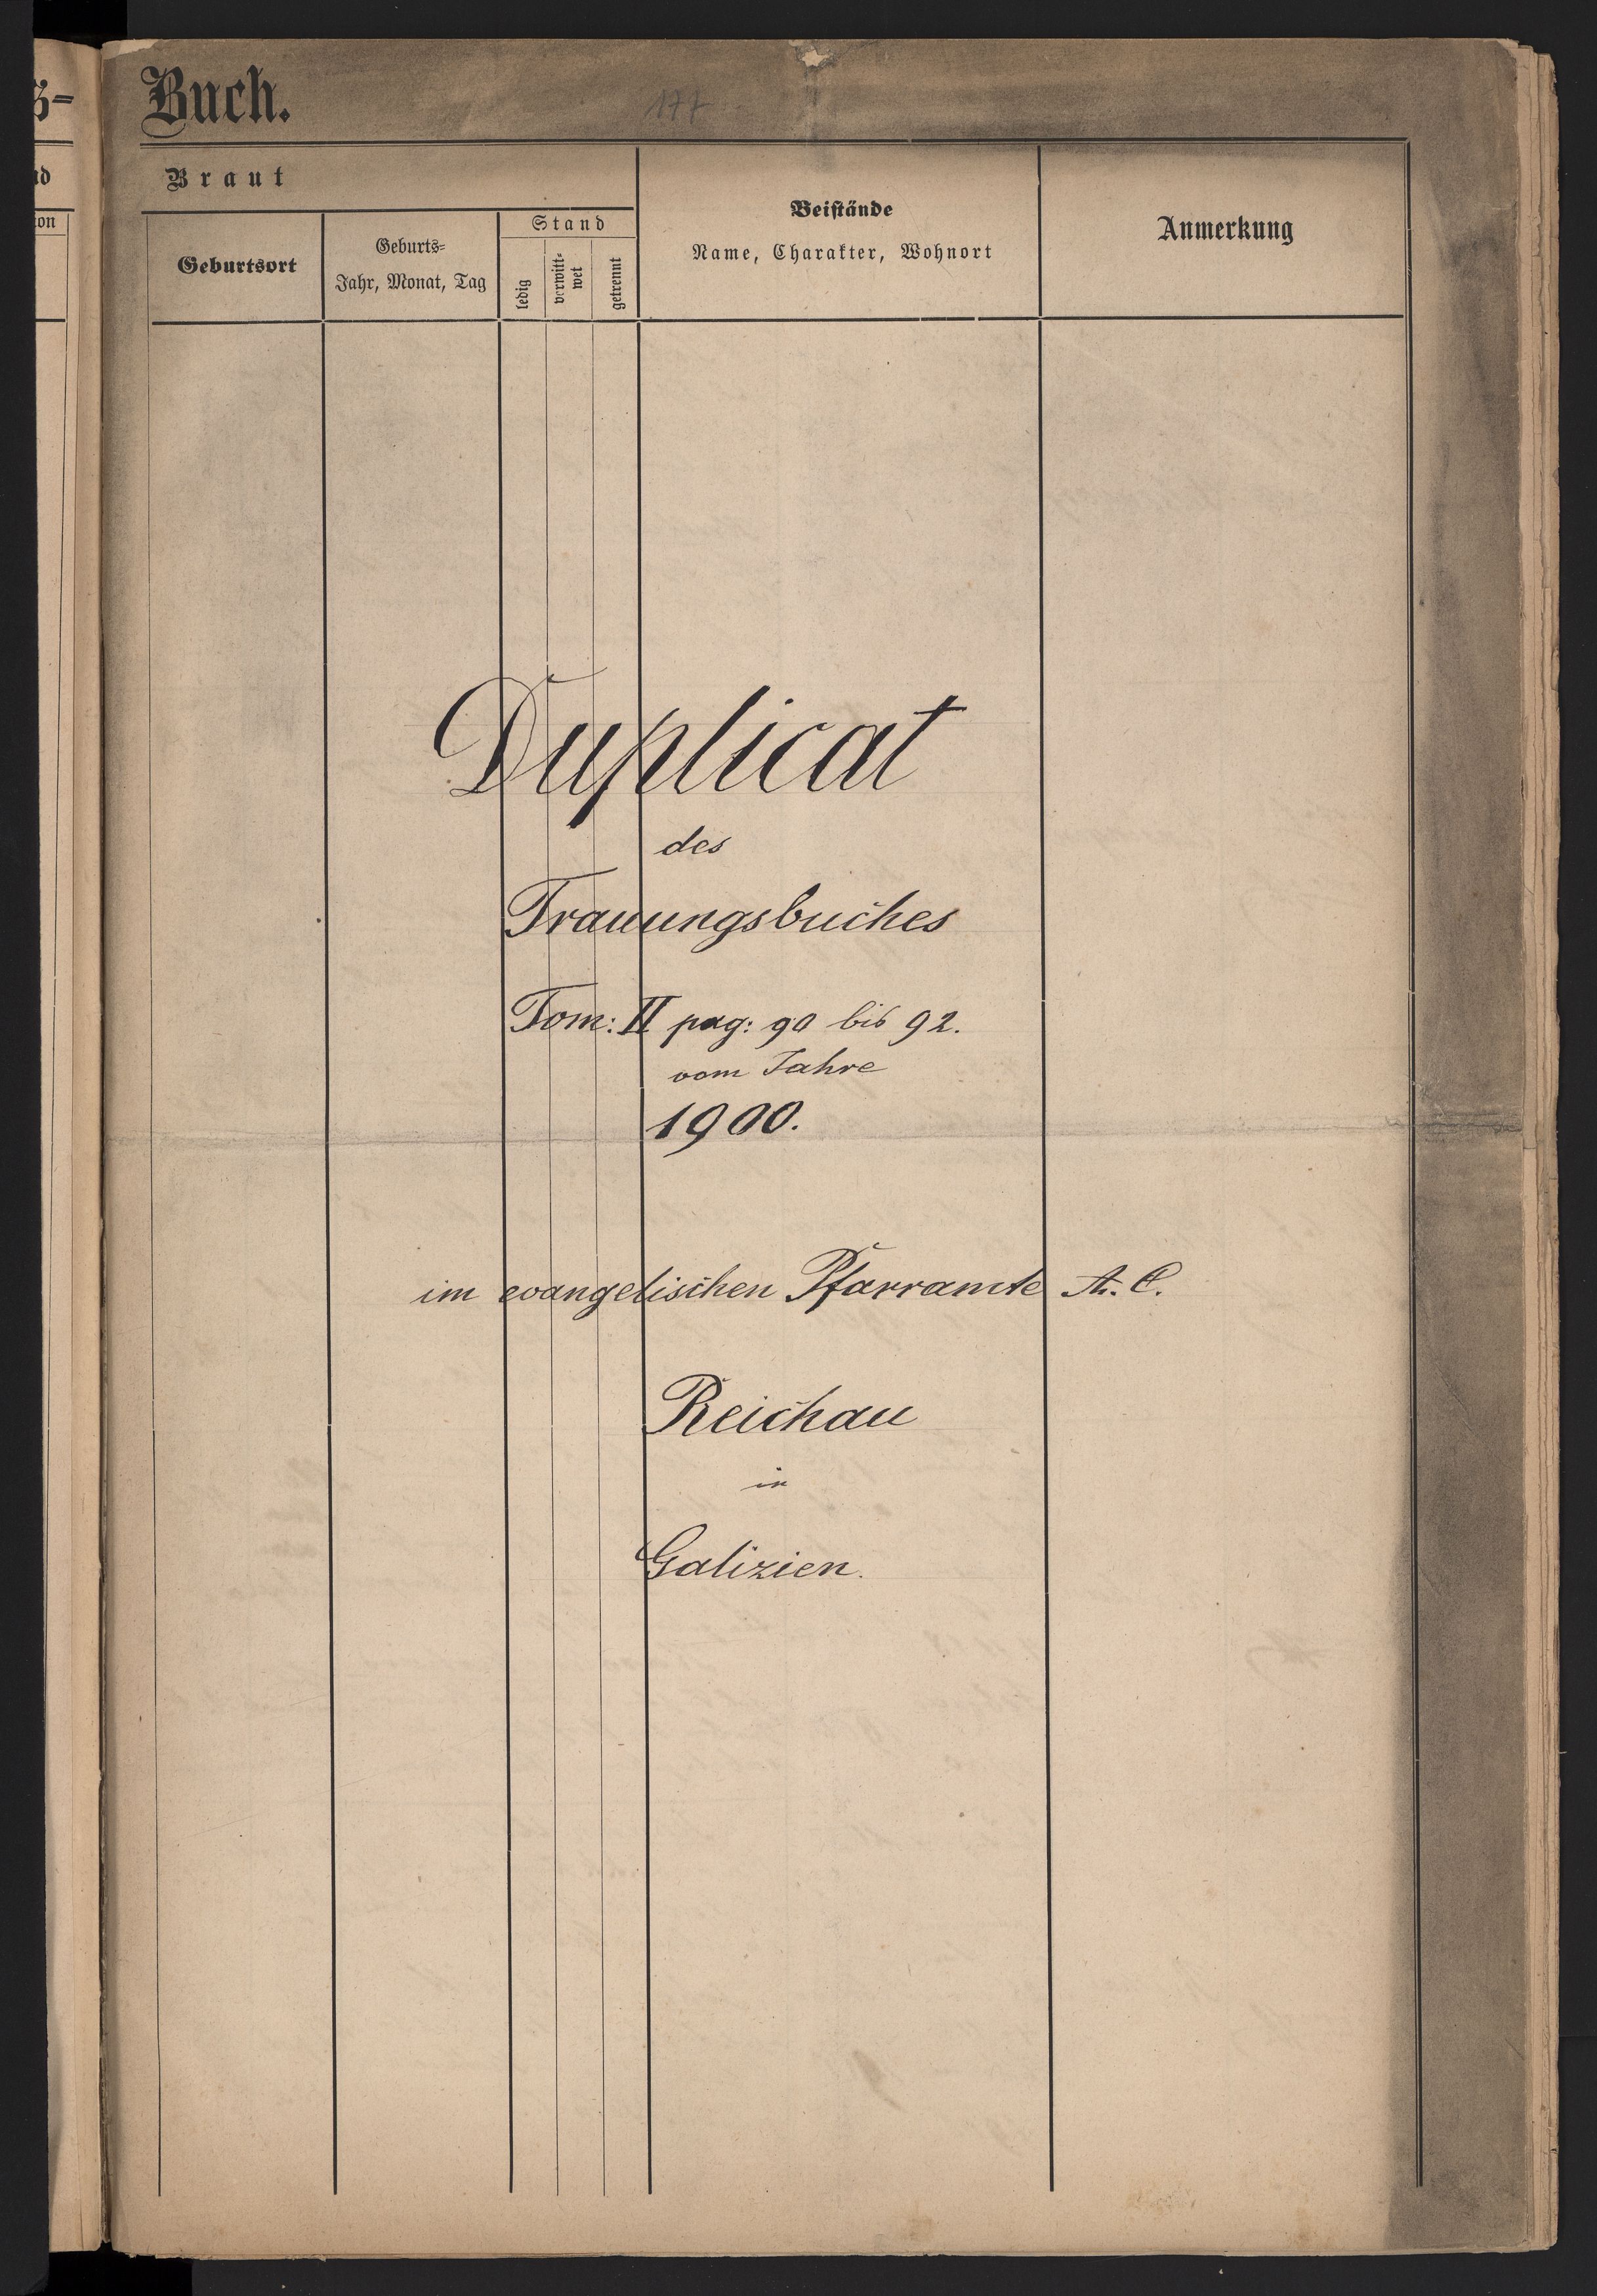 Buch.
177
Braut
Geburtsort
Geburts-
Jahr, Monat, Tag
Stand
ledig
verwitt-
wet
getrennt
Beistände
Name, Charakter, Wohnort
Anmerkung
Duplicat
des
Trauungsbuches
Tom: II pag: 90 bis 92.
vom Jahre
1900.
im evangelischen Pfarramte A. C.
Reichau
in
Galizien.